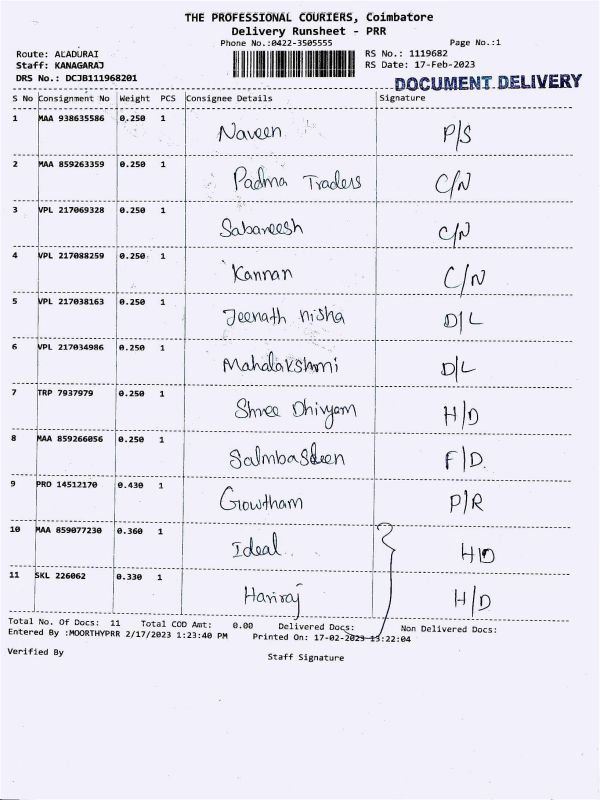 THE PROFESSIONAL COURIERS, Coimbatore
Delivery Runsheet - PRR
Phone No.:0422-3505555 Page No.:1
Route: ALADURAI RS No.: 1119682
Staff: KANAGARAJ RS Date: 17-Feb-2023
DRS No.: DCJB111968201
DOCUMENT DELIVERY
S No Consignment No Weight PCS Consignee Details Signature
1 MAA 938635586 0.250 1 Naveen P/S
2 MAA 859263359 0.250 1 Padma Traders C/N
3 VPL 217069328 0.250 1 Sabareesh C/N
4 VPL 217088259 0.250 1 Kannan C/N
5 VPL 217038163 0.250 1 Jeenath nisha D/L
6 VPL 217034986 0.250 1 Mahalakshmi D/L
7 TRP 7937979 0.250 1 Shree Dhivyam H/D
8 MAA 859266056 0.250 1 F/D.
9 PRO 14512170 0.430 1 Growtham P/R
10 MAA 859077230 0.360 1 Ideal H/D
11 SKL 226062 0.330 1 Hariraj H/D
Total No. Of Docs: 11 Total COD Amt: 0.00 Delivered Docs: Non Delivered Docs:
Entered By :MOORTHYPRR 2/17/2023 1:23:40 PM Printed On: 17-02-2023 13:22:04
Verified By Staff Signature